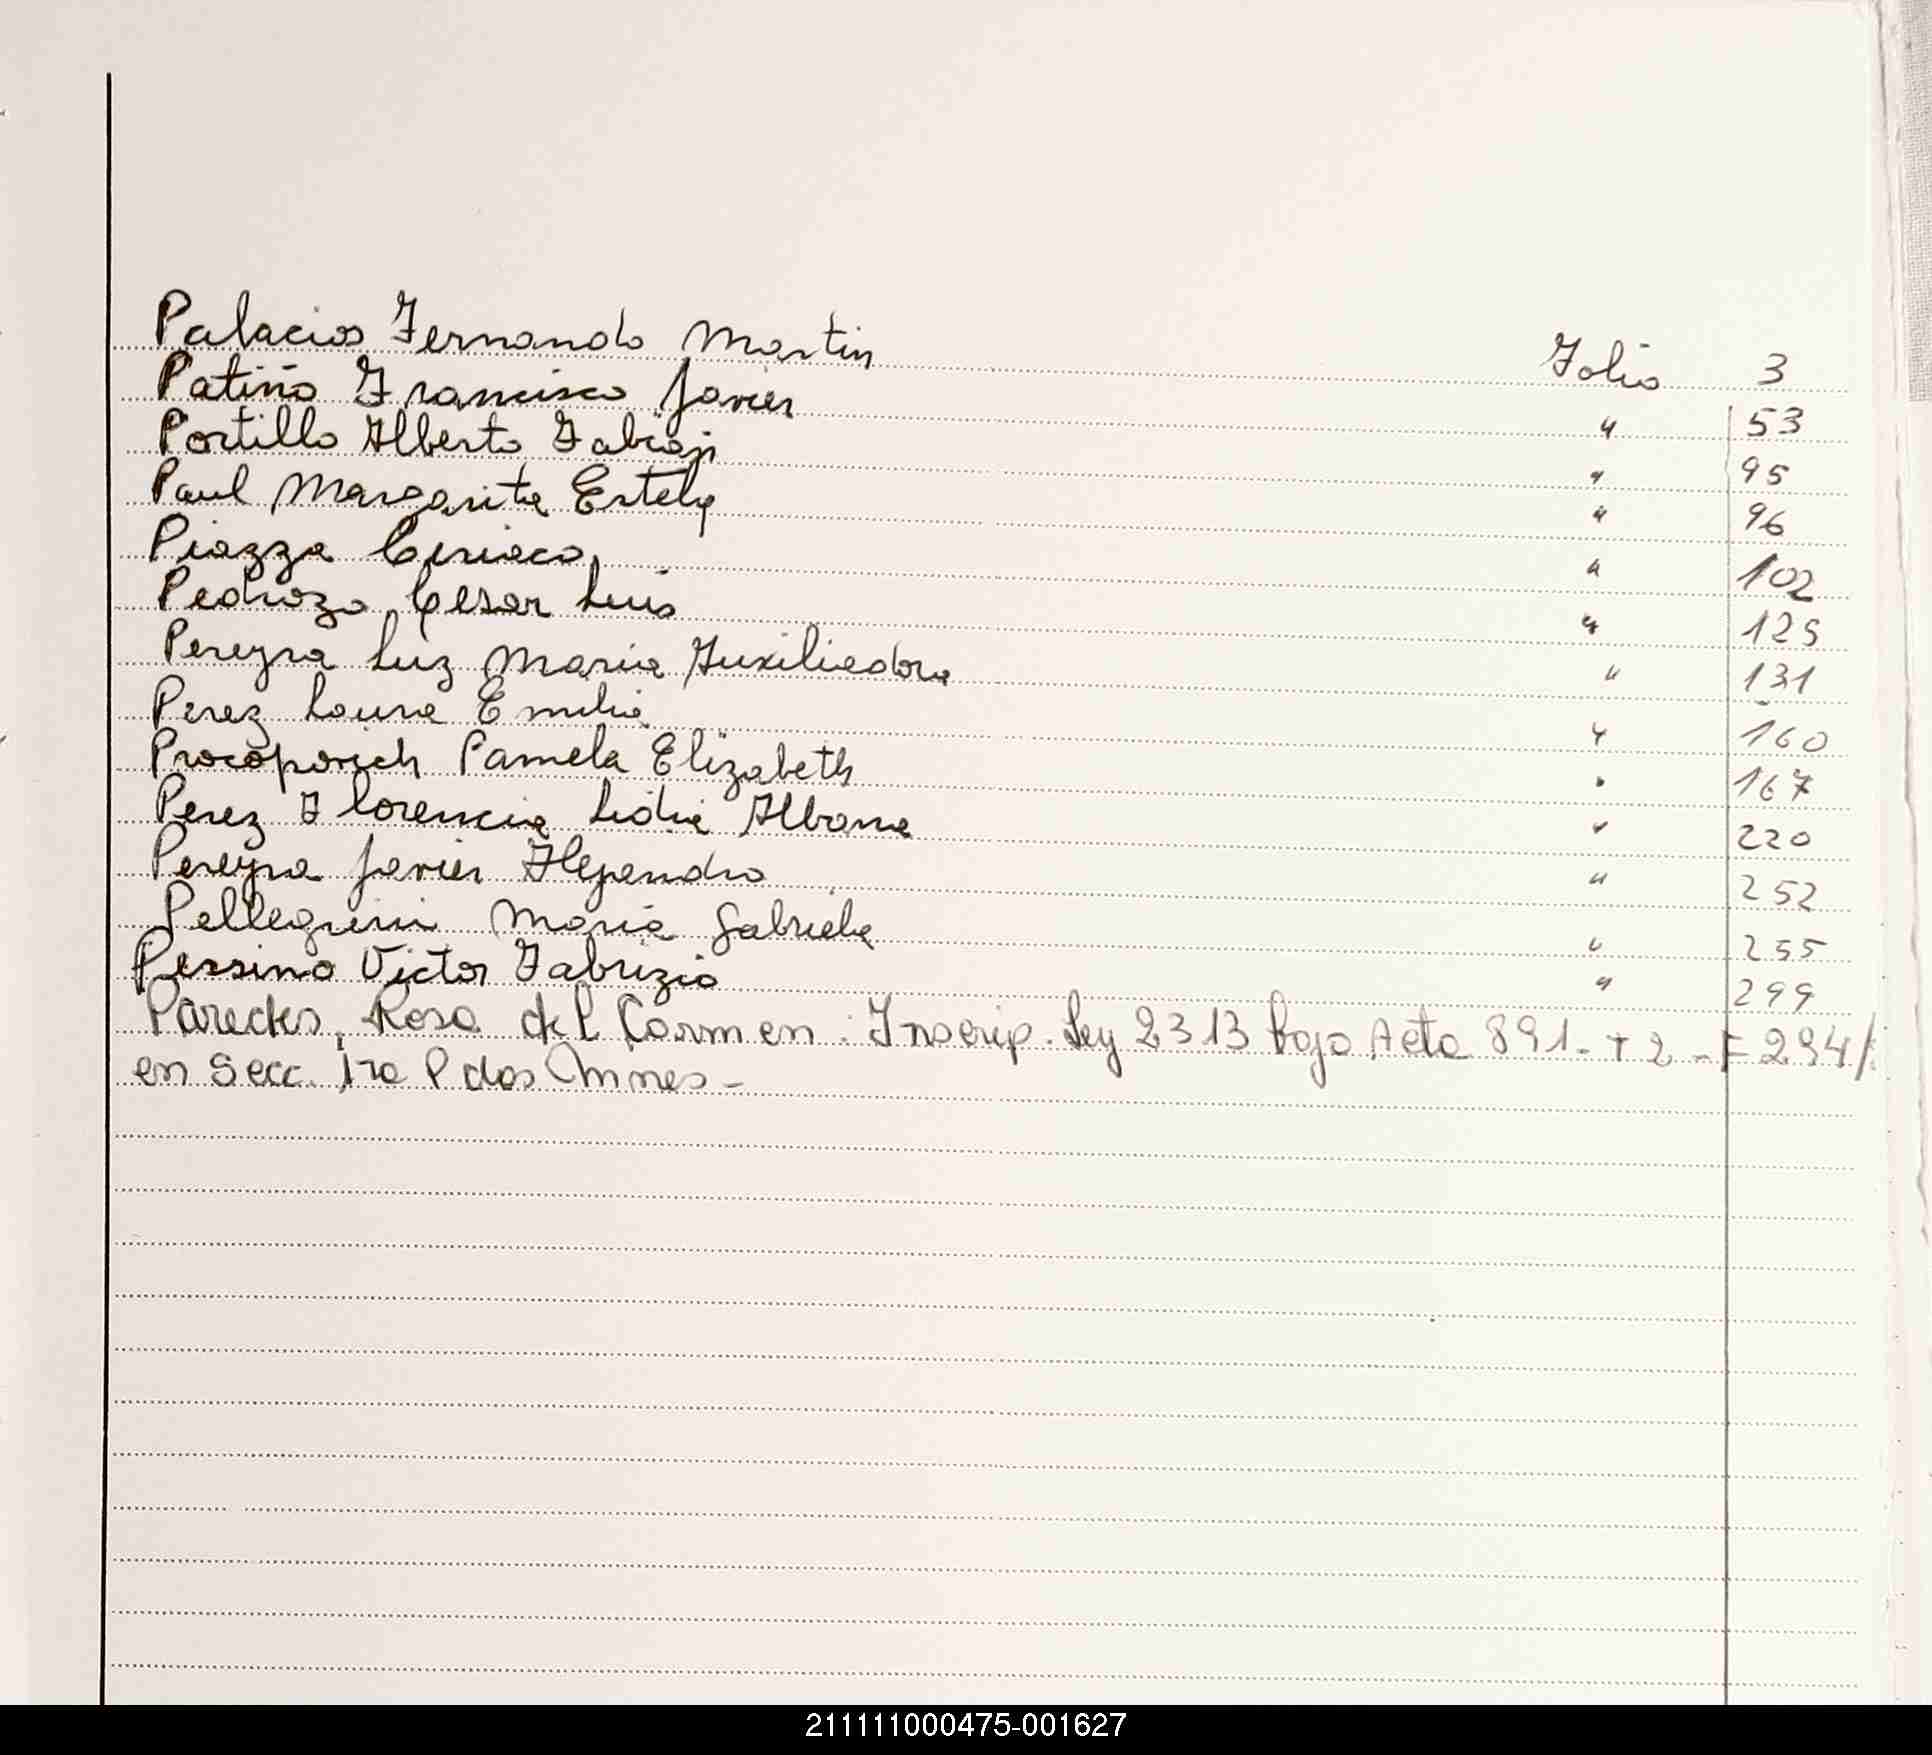 Palacios Fernando Martin Folio 3
Patiño Francisco Javier " 53
Portillo Alberto " 95
Paul Margarita Estela " 96
Piazza Ciriaco " 102
Pedrozo Cesar Luis " 125
Pereyra Luz Maria Auxiliadora " 131
Perez Laura Emilia " 160
Procopovich Pamela Elizabeth " 167
Perez Florencia Lidia Albana " 220
Pereyra Javier Alejandro " 252
Pellegrini Maria Gabriela " 255
Pessino Victor Fabrizio " 299
Paredes, Rosa del Carmen: Inscrip. Ley 2313 bajo Acta 891. T 2 - F 294/
en Secc. 1ra P dos Mnes -
211111000475-001627